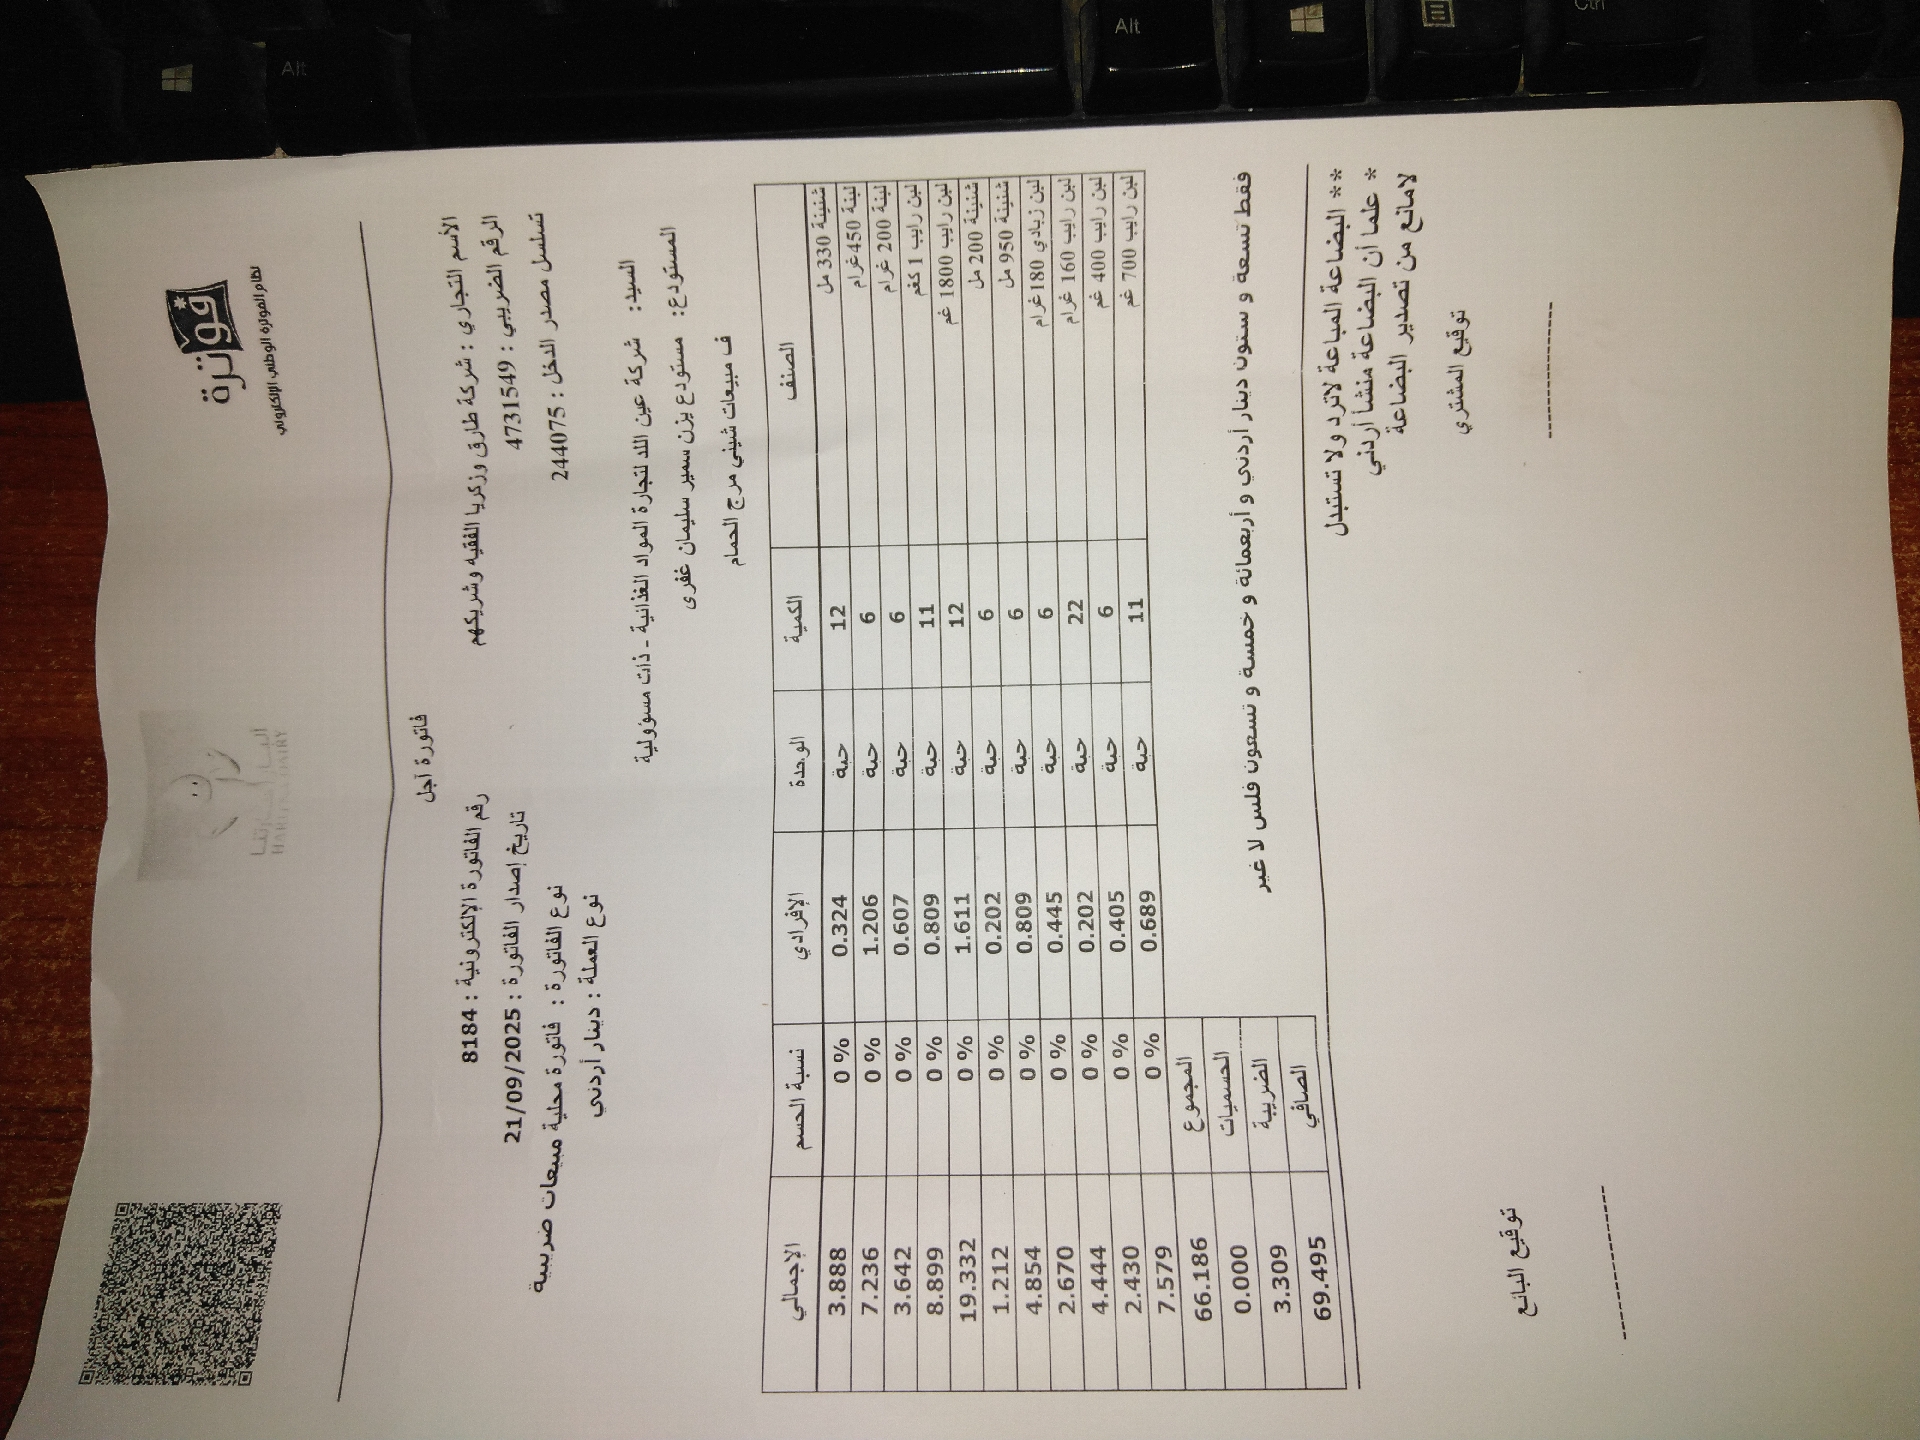 فوترة
نظام الفوترة الوطني الإلكتروني
HARETNA DAIRY
فاتورة آجل
الأسم التجاري : شركة طارق وزكريا الفقيه وشريكهم
رقم الفاتورة الإلكترونية : 8184
الرقم الضريبي : 4731549
تاريخ إصدار الفاتورة : 21/09/2025
تسلسل مصدر الدخل : 244075
نوع الفاتورة : فاتورة محلية مبيعات ضريبية
نوع العملة : دينار أردني
السيد: شركة عين اللد لتجارة المواد الغذائية - ذات مسؤولية
المستودع: مستودع يزن سمير سليمان غفرى
ف مبيعات شيني مرج الحمام
الصنف الكمية الوحدة الإفرادي نسبة الحسم الإجمالي
شنينة 330 مل 12 حبة 0.324 0 % 3.888
لبنة 450 غرام 6 حبة 1.206 0 % 7.236
لبنة 200 غرام 6 حبة 0.607 0 % 3.642
لبن رايب 1 كغم 11 حبة 0.809 0 % 8.899
لبن رايب 1800 غم 12 حبة 1.611 0 % 19.332
شنينة 200 مل 6 حبة 0.202 0 % 1.212
شنينة 950 مل 6 حبة 0.809 0 % 4.854
لبن زبادي 180 غرام 6 حبة 0.445 0 % 2.670
لبن رايب 160 غرام 22 حبة 0.202 0 % 4.444
لبن رايب 400 غم 6 حبة 0.405 0 % 2.430
لبن رايب 700 غم 11 حبة 0.689 0 % 7.579
المجموع 66.186
الحسميات 0.000
الضريبة 3.309
الصافي 69.495
فقط تسعة و ستون دينار أردني و أربعمائة و خمسة و تسعون فلس لا غير
** البضاعة المباعة لاترد ولا تستبدل
* علما أن البضاعة منشأ أردني
لامانع من تصدير البضاعة
توقيع المشتري
توقيع البائع